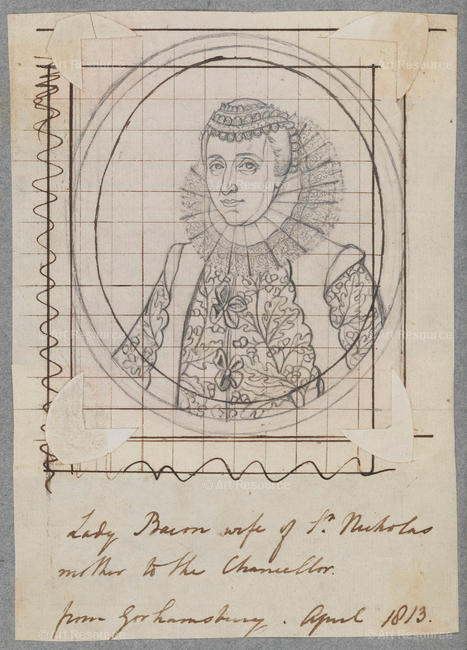 Lady Bacon wife of Sr. Nicholas
mother to the Chancellor.
from Gorhambury. April 1813.
© Art Resource